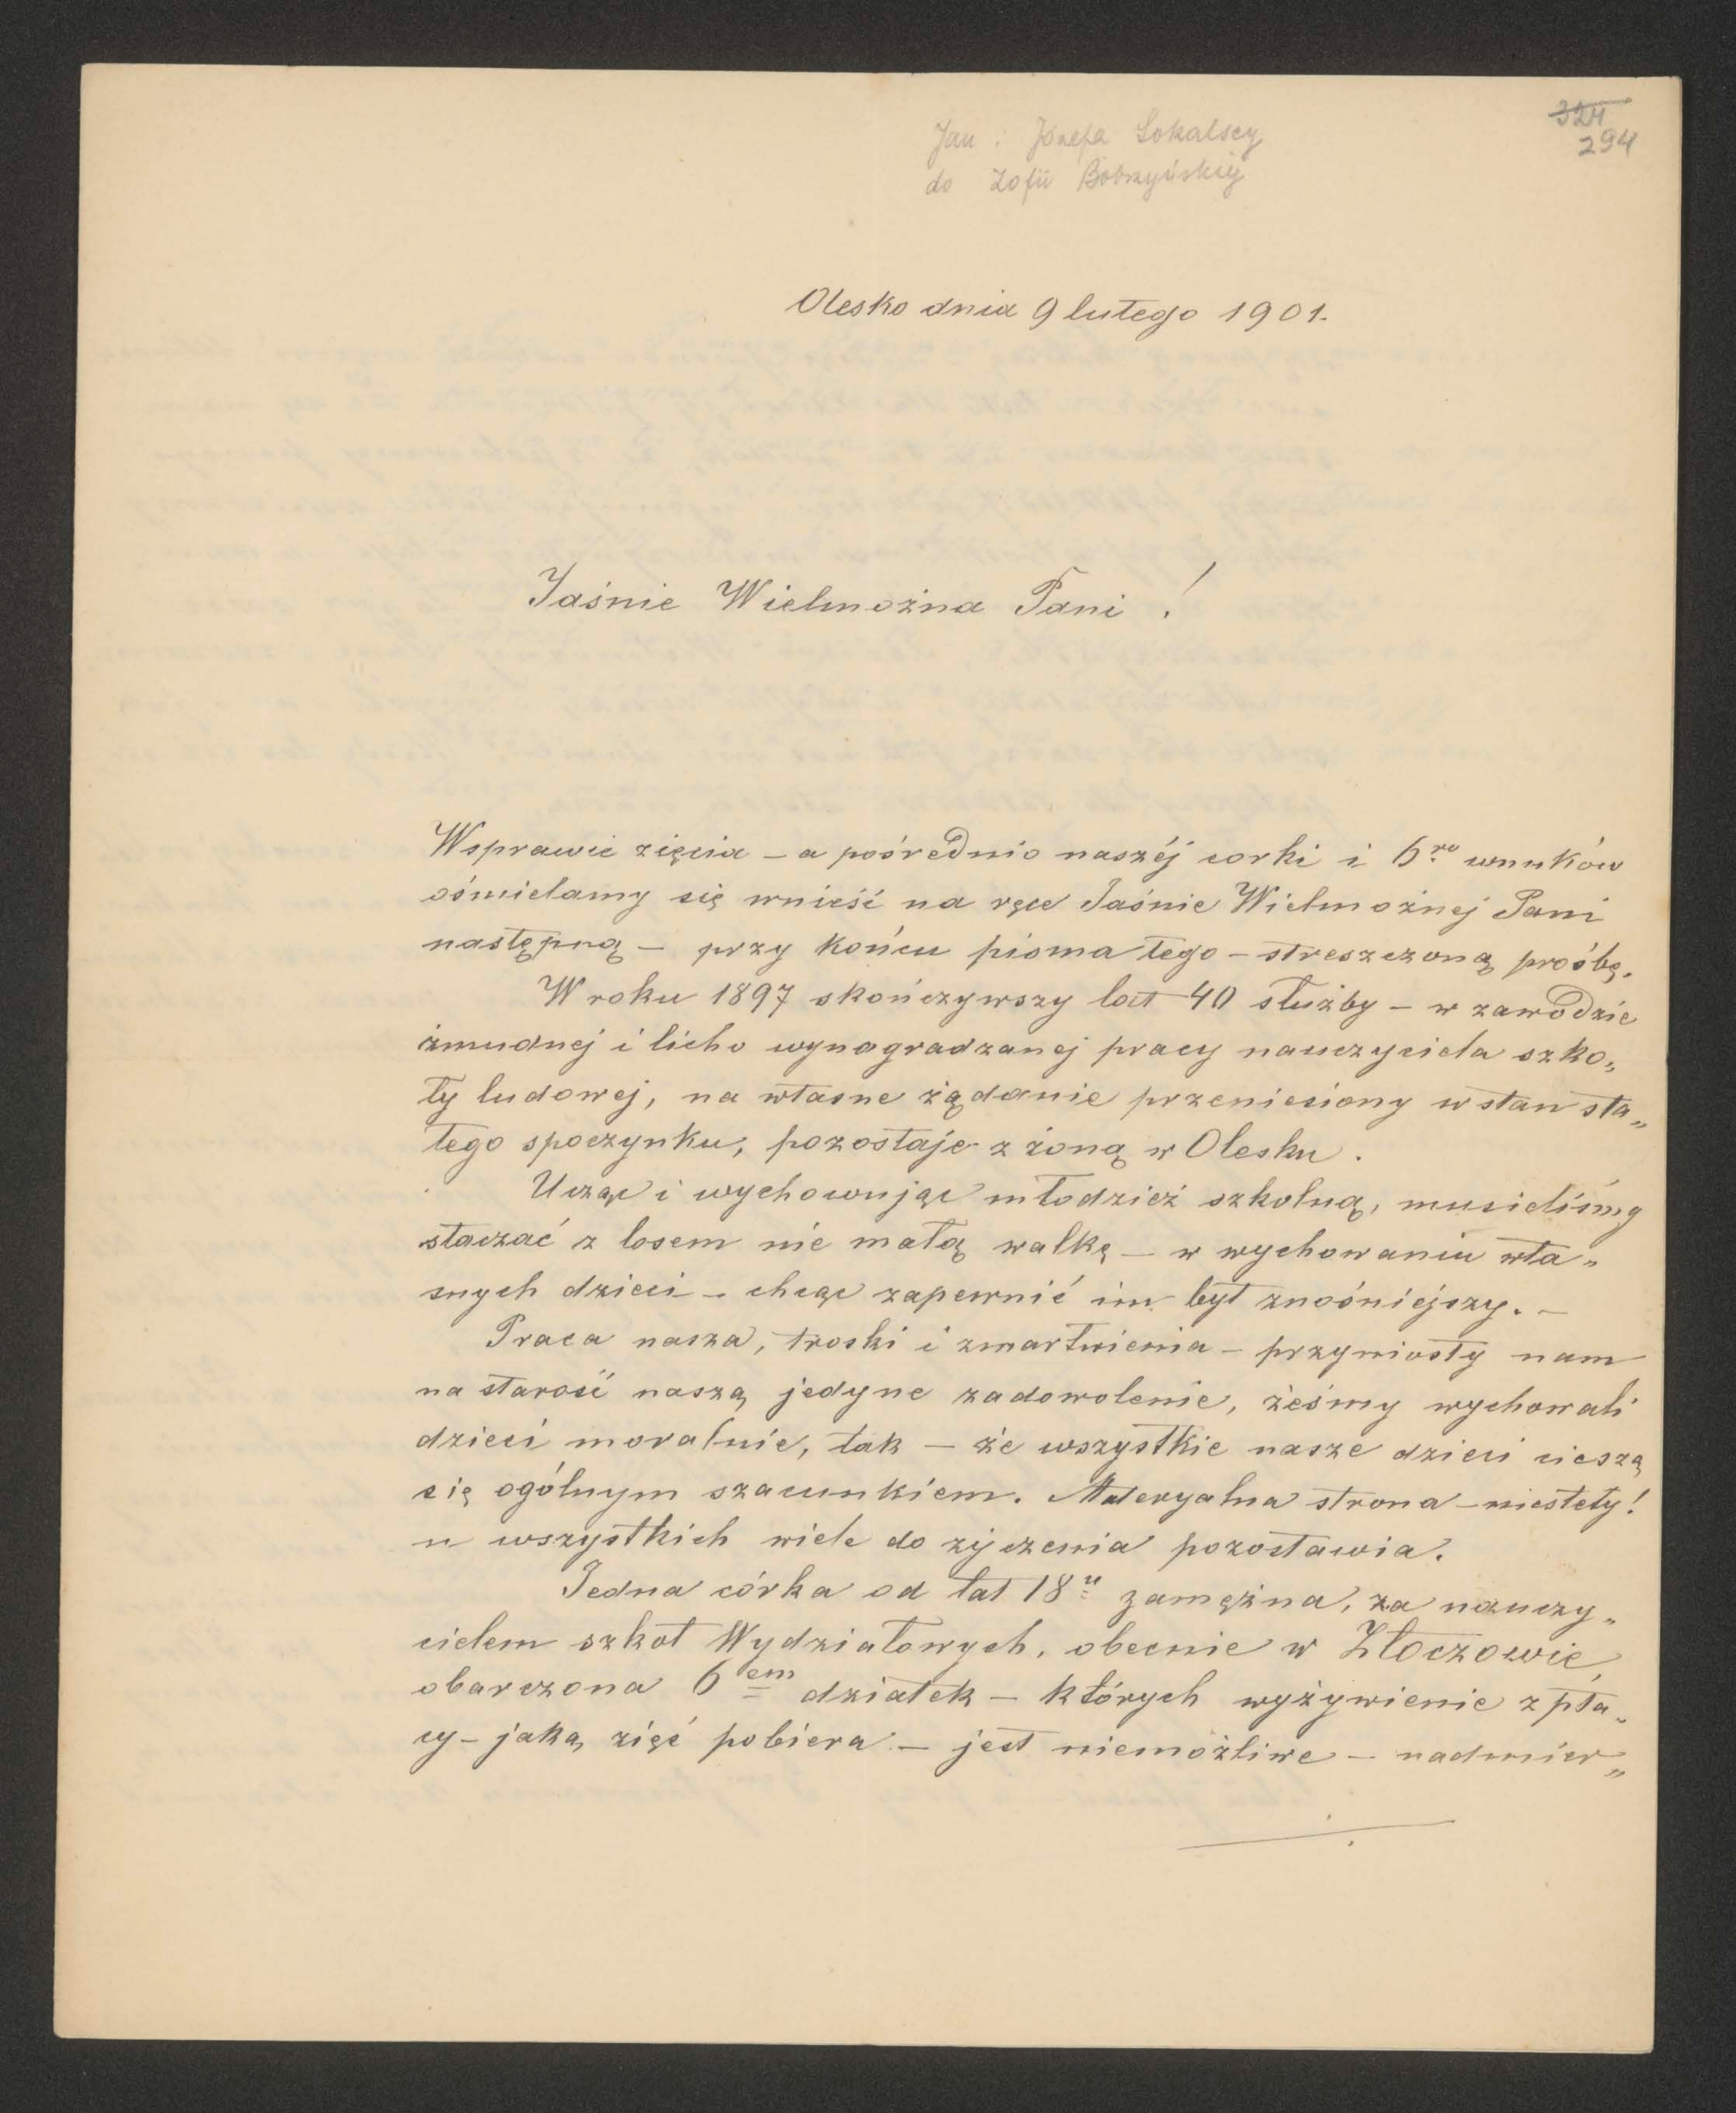 324
294
Jan i Józefa Sokalscy
do Zofii Bobrzyńskiej
Olesko dnia 9 lutego 1901.
Jaśnie Wielmożna Pani !
Wsprawie zięcia – a pośrednio naszéj corki i 6ro wnuków
ośmielamy się wnieść na ręce Jaśnie Wielmożnej Pani
następną – przy końcu pisma tego – streszczoną prośbę.
W roku 1897 skończywszy lat 40 służby – w zawodzie
żmudnej i licho wynagradzanej pracy nauczyciela szko„
ły ludowej, na własne żądanie przeniesiony w stan sta„
łego spoczynku, pozostaję z żoną w Olesku.
Ucząc i wychowując młodzież szkolną, musieliśmy
staczać z losem nie małą walkę – w wychowaniu wła„
snych dzieci – chcąc zapewnić im byt znośniejszy. –
Praca nasza, troski i zmartwienia – przyniosły nam
na starość naszą jedyne zadowolenie, żeśmy wychowali
dzieci moralnie, tak – że wszystkie nasze dzieci cieszą
się ogólnym szacunkiem. Materyalna strona – niestety!
u wszystkich wiele do życzenia pozostawia.
Jedna córka od lat 18u zamężna, za nauczy„
cielem szkół Wydziałowych, obecnie w Złoczowie,
obarczona 6em dziatek – których wyżywienie z pła„
cy – jaką zięć pobiera – jest niemożliwe – nadmier„